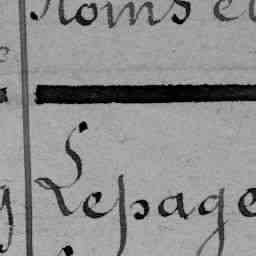 Noms et
Lepage